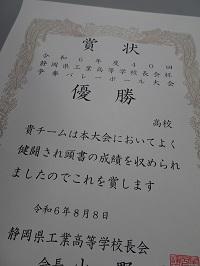 賞状
令和６年度４０回
静岡県工業高等学校長会杯
争奪バレーボール大会
優勝
高校
貴チームは本大会においてよく
健闘され頭書の成績を収められ
ましたのでこれを賞します
令和６年８月８日
静岡県工業高等学校長会
会長